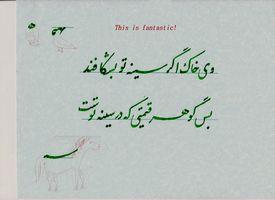 This is fantastic!
وی خاک اگر سینه تو بشکافند
بس گوهر قیمتی که در سینه توست